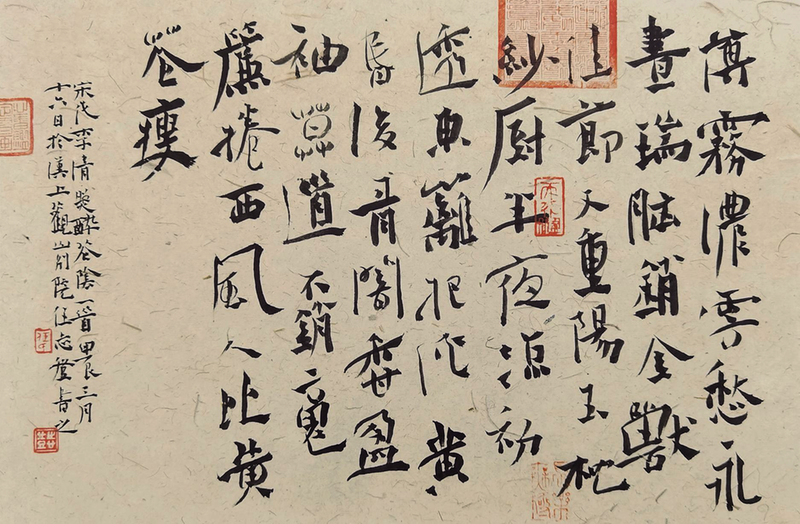 薄霧濃雲愁永
晝瑞腦銷金獸
佳節又重陽玉枕
紗厨半夜涼初
透東籬把酒黃
昏後有闇香盈
袖莫道不銷魂
簾捲西風人比黃
花瘦
宋代李清照醉花陰一首甲辰三月
十六日於上觀山別院志登書之